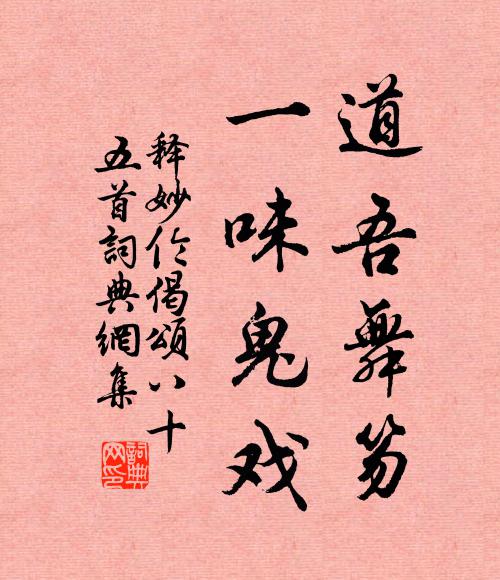 道吾舞笏
一味鬼戏
释妙伦偈颂八十
五首詞典網集
詞典网印